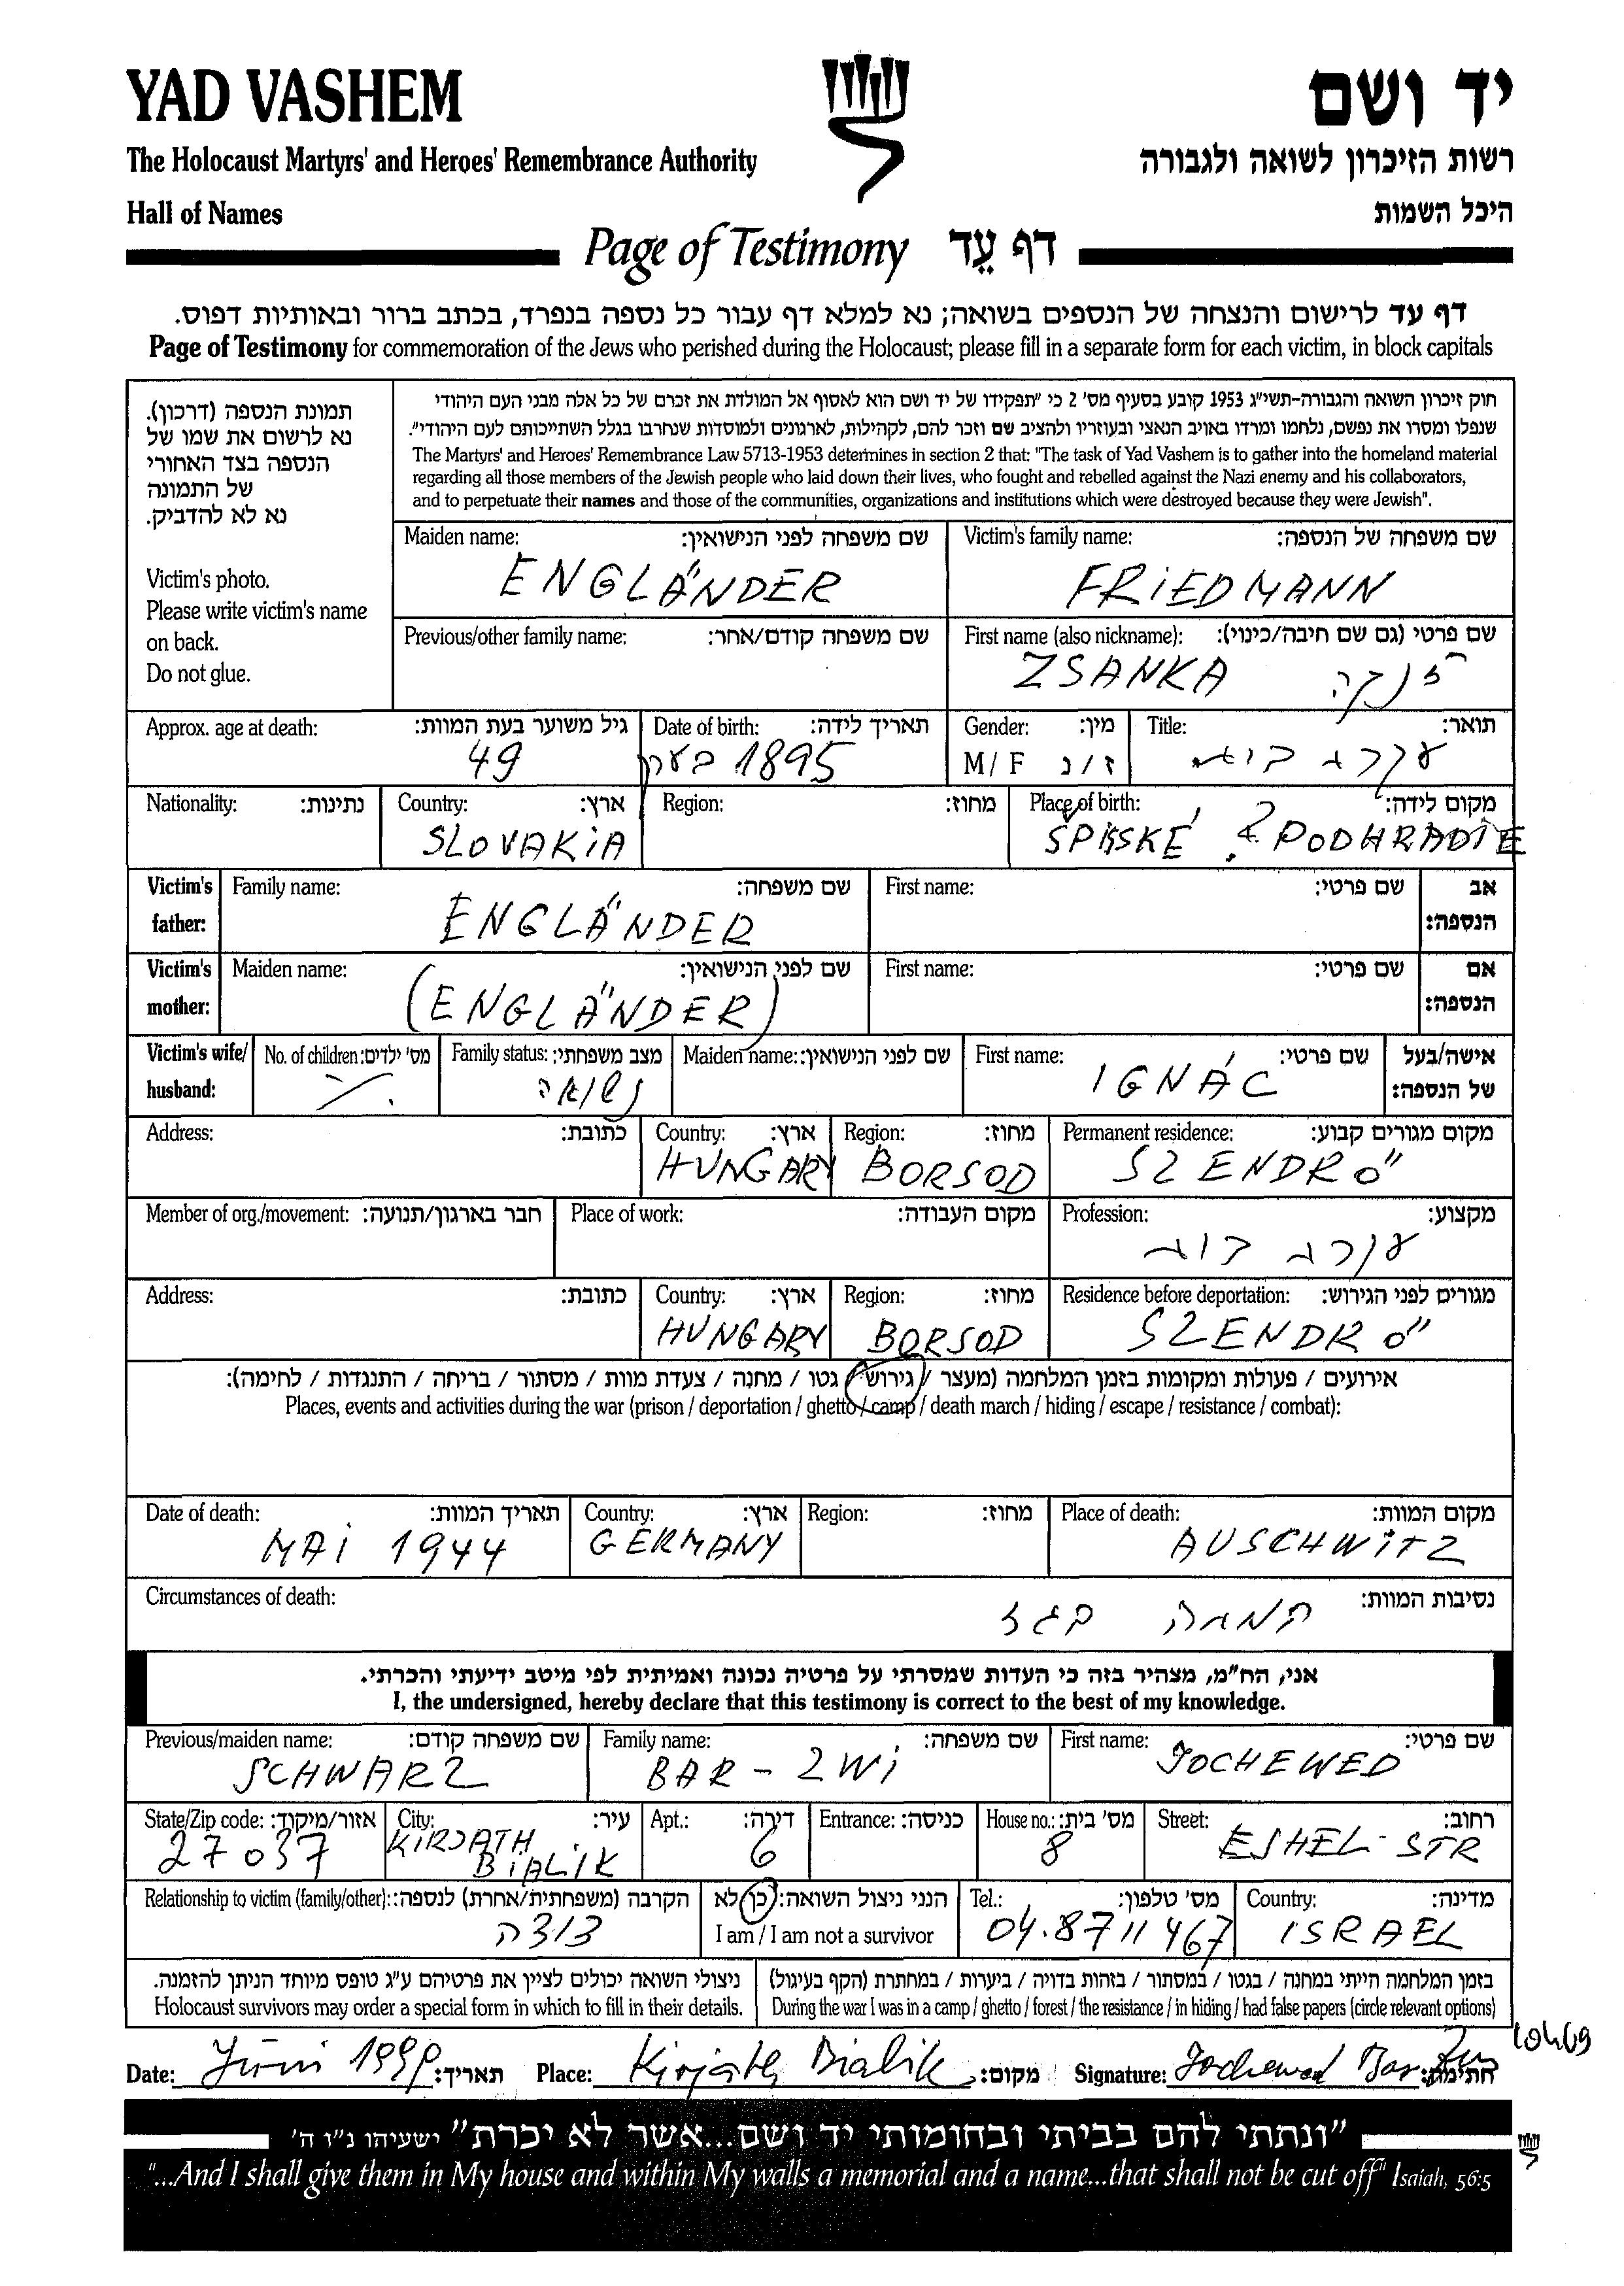 YAD VASHEM
יד ושם
The Holocaust Martyrs' and Heroes' Remembrance Authority
רשות הזיכרון לשואה ולגבורה
Hall of Names
היכל השמות
Page of Testimony דף עֵד
דף עד לרישום והנצחה של הנספים בשואה; נא למלא דף עבור כל נספה בנפרד, בכתב ברור ובאותיות דפוס.
Page of Testimony for commemoration of the Jews who perished during the Holocaust; please fill in a separate form for each victim, in block capitals
תמונת הנספה (דרכון).
נא לרשום את שמו של
הנספה בצד האחורי
של התמונה
נא לא להדביק.
Victim's photo.
Please write victim's name
on back.
Do not glue.
חוק זיכרון השואה והגבורה-תשי"ג 1953 קובע בסעיף מס' 2 כי "תפקידו של יד ושם הוא לאסוף אל המולדת את זכרם של כל אלה מבני העם היהודי
שנפלו ומסרו את נפשם, נלחמו ומרדו באויב הנאצי ובעוזריו ולהציב שם וזכר להם, לקהילות, לארגונים ולמוסדות שנחרבו בגלל השתייכותם לעם היהודי".
The Martyrs' and Heroes' Remembrance Law 5713-1953 determines in section 2 that: "The task of Yad Vashem is to gather into the homeland material
regarding all those members of the Jewish people who laid down their lives, who fought and rebelled against the Nazi enemy and his collaborators,
and to perpetuate their names and those of the communities, organizations and institutions which were destroyed because they were Jewish".
Maiden name: שם משפחה לפני הנישואין:
ENGLÄNDER
Victim's family name: שם משפחה של הנספה:
FRIEDMANN
Previous/other family name: שם משפחה קודם/אחר:
First name (also nickname): שם פרטי (גם שם חיבה/כינוי):
ZSANKA ז'נקה
Approx. age at death: גיל משוער בעת המוות:
49
Date of birth: תאריך לידה:
1895 בערך
Gender: מין:
M / F ז / נ
Title: תואר:
עקרת בית
Nationality: נתינות:
Country: ארץ:
SLOVAKIA
Region: מחוז:
Place of birth: מקום לידה:
SPIŠSKÉ PODHRADIE
Victim's father: Family name: שם משפחה:
ENGLÄNDER
First name: שם פרטי:
אב הנספה:
Victim's mother: Maiden name: שם לפני הנישואין:
(ENGLÄNDER)
First name: שם פרטי:
אם הנספה:
Victim's wife/ husband:
No. of children: מס' ילדים:
Family status: מצב משפחתי:
נשואה
Maiden name: שם לפני הנישואין:
First name: שם פרטי:
IGNÁC
אישה/בעל של הנספה:
Address: כתובת:
Country: ארץ:
HUNGARY
Region: מחוז:
BORSOD
Permanent residence: מקום מגורים קבוע:
SZENDRŐ
Member of org./movement: חבר בארגון/תנועה:
Place of work: מקום העבודה:
Profession: מקצוע:
עקרת בית
Address: כתובת:
Country: ארץ:
HUNGARY
Region: מחוז:
BORSOD
Residence before deportation: מגורים לפני הגירוש:
SZENDRŐ
אירועים / פעולות ומקומות בזמן המלחמה (מעצר / גירוש / גטו / מחנה / צעדת מוות / מסתור / בריחה / התנגדות / לחימה):
Places, events and activities during the war (prison / deportation / ghetto / camp / death march / hiding / escape / resistance / combat):
Date of death: תאריך המוות:
MAI 1944
Country: ארץ:
GERMANY
Region: מחוז:
Place of death: מקום המוות:
AUSCHWITZ
Circumstances of death: נסיבות המוות:
הומתה בגז
אני, הח"מ, מצהיר בזה כי העדות שמסרתי על פרטיה נכונה ואמיתית לפי מיטב ידיעתי והכרתי.
I, the undersigned, hereby declare that this testimony is correct to the best of my knowledge.
Previous/maiden name: שם משפחה קודם:
SCHWARZ
Family name: שם משפחה:
BAR - ZWI
First name: שם פרטי:
JOCHEWED
State/Zip code: אזור/מיקוד:
27037
City: עיר:
KIRJATH
BIALIK
Apt.: דירה:
6
Entrance: כניסה:
House no.: מס' בית:
8
Street: רחוב:
ESHEL-STR
Relationship to victim (family/other): הקרבה (משפחתית/אחרת) לנספה:
דודה
הנני ניצול השואה: כן לא
I am / I am not a survivor
Tel.: מס' טלפון:
04.8711467
Country: מדינה:
ISRAEL
ניצולי השואה יכולים לציין את פרטיהם ע"ג טופס מיוחד הניתן להזמנה.
Holocaust survivors may order a special form in which to fill in their details.
בזמן המלחמה הייתי במחנה / בגטו / במסתור / בזהות בדויה / ביערות / במחתרת (הקף בעיגול)
During the war I was in a camp / ghetto / forest / the resistance / in hiding / had false papers (circle relevant options)
Date: Juni 1999 תאריך: Place: Kirjath Bialik מקום: Signature: Jochewed Bar Zwi חתימה:
"ונתתי להם בביתי ובחומותי יד ושם...אשר לא יכרת" ישעיהו נ"ו ה'
"...And I shall give them in My house and within My walls a memorial and a name...that shall not be cut off" Isaiah, 56:5